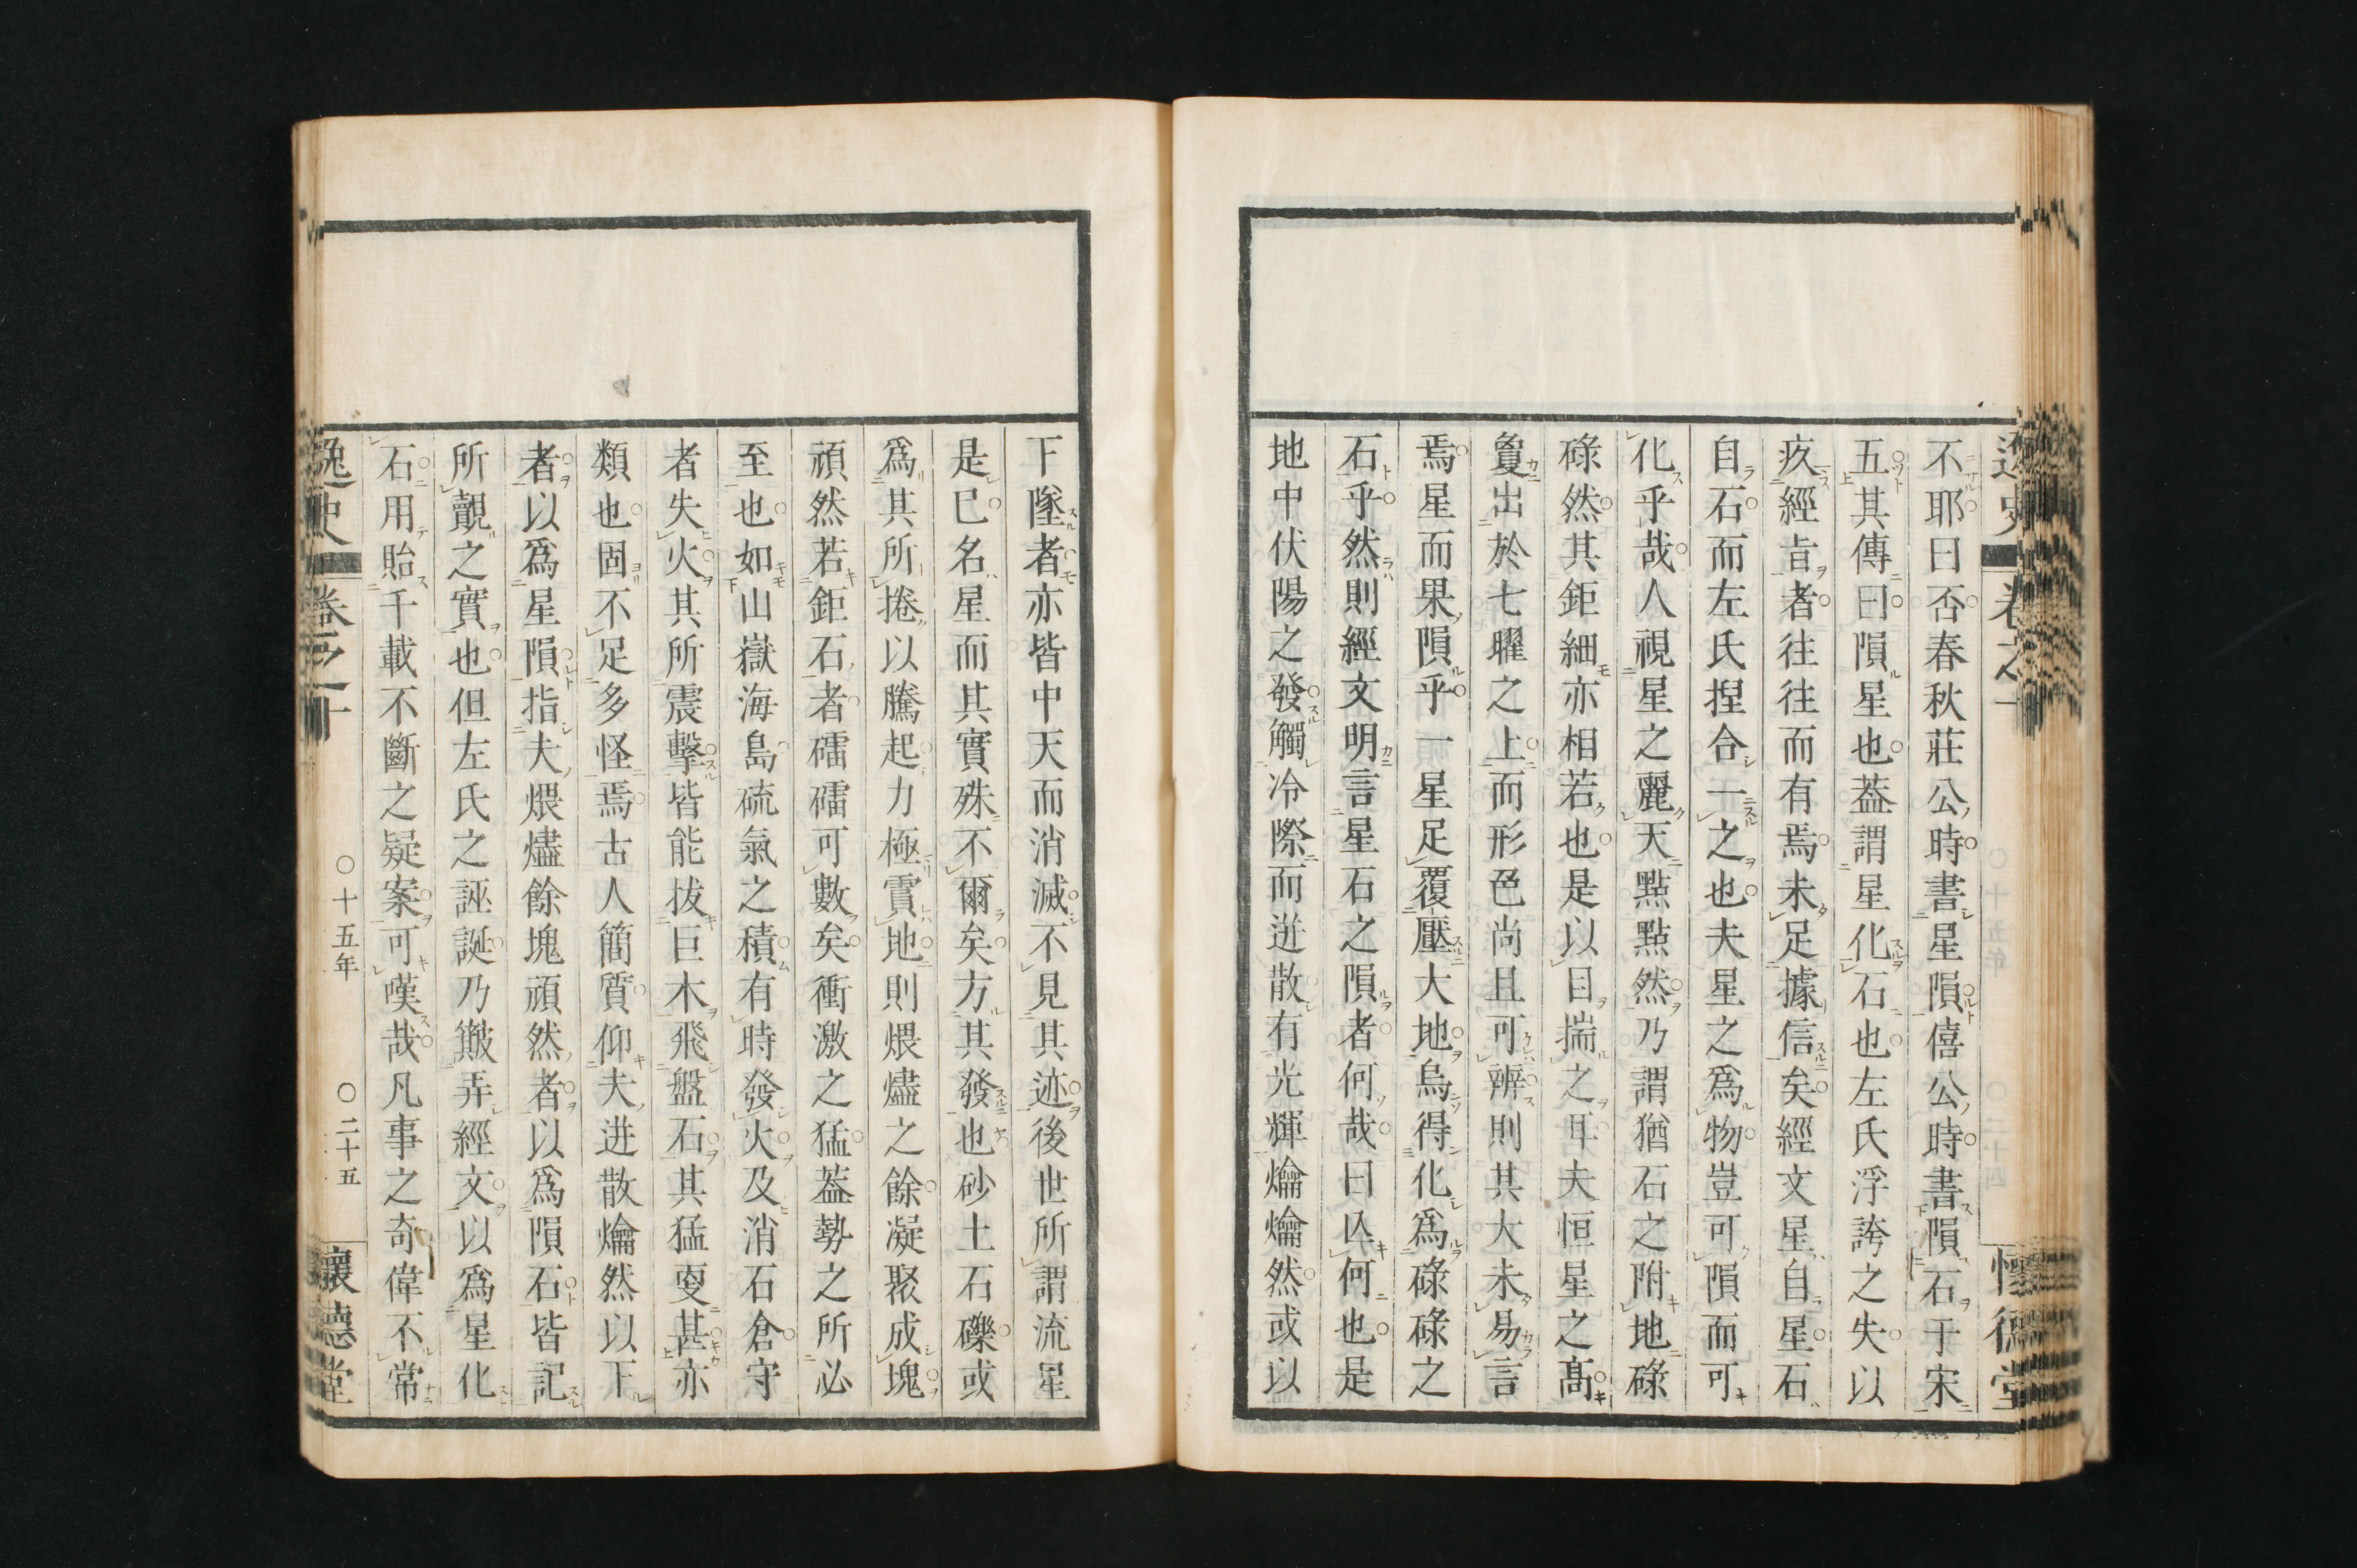 不耶曰否春秋莊公時書星隕僖公時書隕石于宋
五其傳曰隕星也葢謂星化石也左氏浮誇之失以
疚經旨者往往而有焉未足據信矣經文星自星石
自石而左氏捏合一之也夫星之爲物豈可隕而可
化乎哉人視星之麗天點點然乃謂猶石之附地碌
碌然其鉅細亦相若也是以目揣之耳夫恒星之髙
敻出於七曜之上而形色尚且可辨則其大未易言
焉星而果隕乎一星足覆壓大地烏得化爲碌碌之
石乎然則經文明言星石之隕者何哉曰亾何也是
地中伏陽之發觸冷際而迸散有光輝爚爚然或以
下墜者亦皆中天而消滅不見其迹後世所謂流星
是巳名星而其實殊不爾矣方其發也砂土石礫或
爲其所捲以騰起力極賈地則煨燼之餘凝聚成塊
頑然若鉅石者礌礌可數矣衝激之猛葢勢之所必
至也如山嶽海島硫氣之積有時發火及消石倉守
者失火其所震擊皆能拔巨木飛盤石其猛㪅甚亦
類也固不足多怪焉古人簡質仰夫迸散爚然以下
者以爲星隕指夫煨燼餘塊頑然者以爲隕石皆記
所覩之實也但左氏之誣誕乃簸弄經文以爲星化
石用貽千載不斷之疑案可嘆哉凡事之奇偉不常
逸史 卷之十 ○十五年 ○二十五 懷德堂